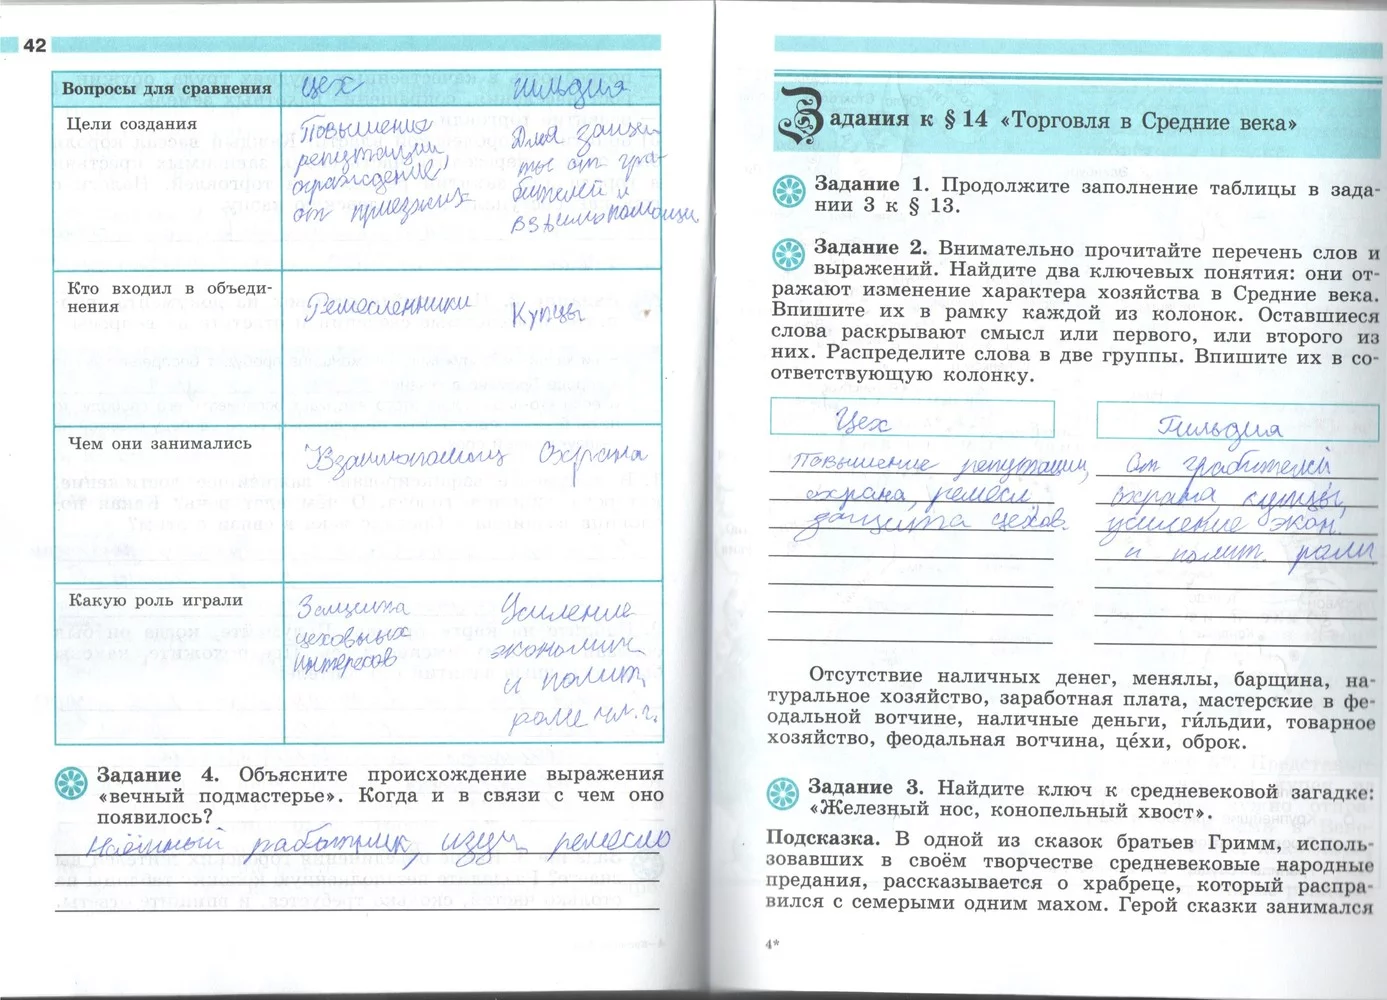 42
Вопросы для сравнения Цех Гильдия
Цели создания
Повышение
репутации,
ограждение
от приезжих
Для защи
ты от гра-
бителей и
взаимопомощи
Кто входил в объеди-
нения
Ремесленники Купцы
Чем они занимались
Взаимопомощ Охрана
Какую роль играли
Защита
цеховых
интересов
Усиление
экономич
и полит.
роли
Задание 4. Объясните происхождение выражения
«вечный подмастерье». Когда и в связи с чем оно
появилось?
Наёмный работник, ремесло
Задания к § 14 «Торговля в Средние века»
Задание 1. Продолжите заполнение таблицы в зада-
нии 3 к § 13.
Задание 2. Внимательно прочитайте перечень слов и
выражений. Найдите два ключевых понятия: они от-
ражают изменение характера хозяйства в Средние века.
Впишите их в рамку каждой из колонок. Оставшиеся
слова раскрывают смысл или первого, или второго из
них. Распределите слова в две группы. Впишите их в со-
ответствующую колонку.
Цех
Повышение репутации,
охрана, ремесл
защита цехов
Гильдия
От грабителей
охрана, купцы,
усиление экон.
и полит. роли
Отсутствие наличных денег, менялы, барщина, на-
туральное хозяйство, заработная плата, мастерские в фе-
одальной вотчине, наличные деньги, ги́льдии, товарное
хозяйство, феодальная вотчина, це́хи, оброк.
Задание 3. Найдите ключ к средневековой загадке:
«Железный нос, конопельный хвост».
Подсказка. В одной из сказок братьев Гримм, исполь-
зовавших в своём творчестве средневековые народные
предания, рассказывается о храбреце, который распра-
вился с семерыми одним махом. Герой сказки занимался
4*